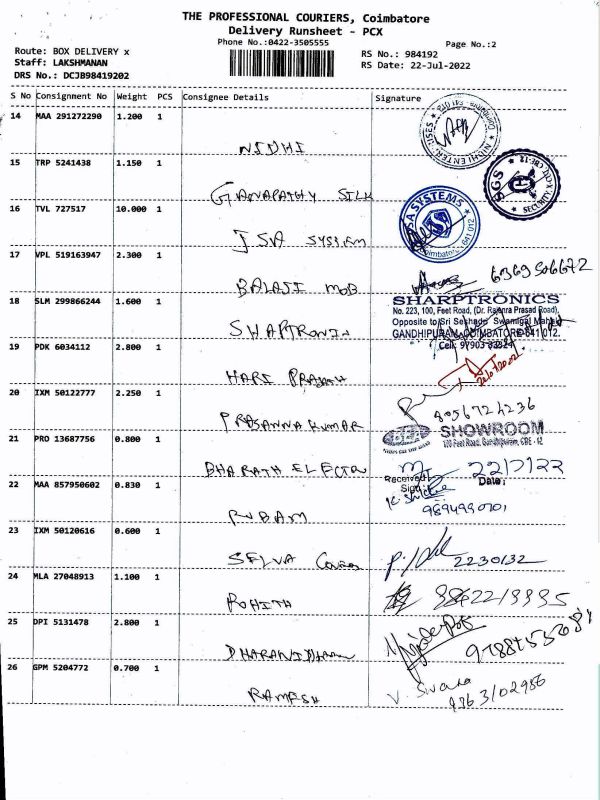 THE PROFESSIONAL COURIERS, Coimbatore
Delivery Runsheet - PCX
Phone No.:0422-3505555
Page No.:2
Route: BOX DELIVERY x
RS No.: 984192
Staff: LAKSHMANAN
RS Date: 22-Jul-2022
DRS No.: DCJB98419202
S No Consignment No Weight PCS Consignee Details Signature
14 MAA 291272290 1.200 1
NIDHI
15 TRP 5241438 1.150 1
GANAPATHY SILK
SGS
16 TVL 727517 10.000 1
JSA SYSTEM
SA SYSTEMS
641 012
17 VPL 519163947 2.300 1
BALAJI MOB
6369506672
18 SLM 299866244 1.600 1
SHARPTRONIN
SHARPTRONICS
No. 223, 100, Feet Road, (Dr. Rajenra Prasad Road),
Opposite to Sri Seshadri Swamigal
GANDHIPURAM, COIMBATORE-641 012.
Cell: 97903
19 PDK 6034112 2.800 1
HARI PRAKASH
20 IXM 50122777 2.250 1
PRASANNA KUMAR
8056724236
21 PRO 13687756 0.800 1
BHARATH ELECTR
SHOWROOM
100 Feet Road, Gandhipuram, CBE - 12
Received
Sign
22/7/22
Date:
22 MAA 857950602 0.830 1
RUBAM
23 IXM 50120616 0.600 1
SELVA
2230132
24 MLA 27048913 1.100 1
ROHITH
25 DPI 5131478 2.800 1
DHARANIDHARAN
26 GPM 5204772 0.700 1
RAMESH
V. Sivara